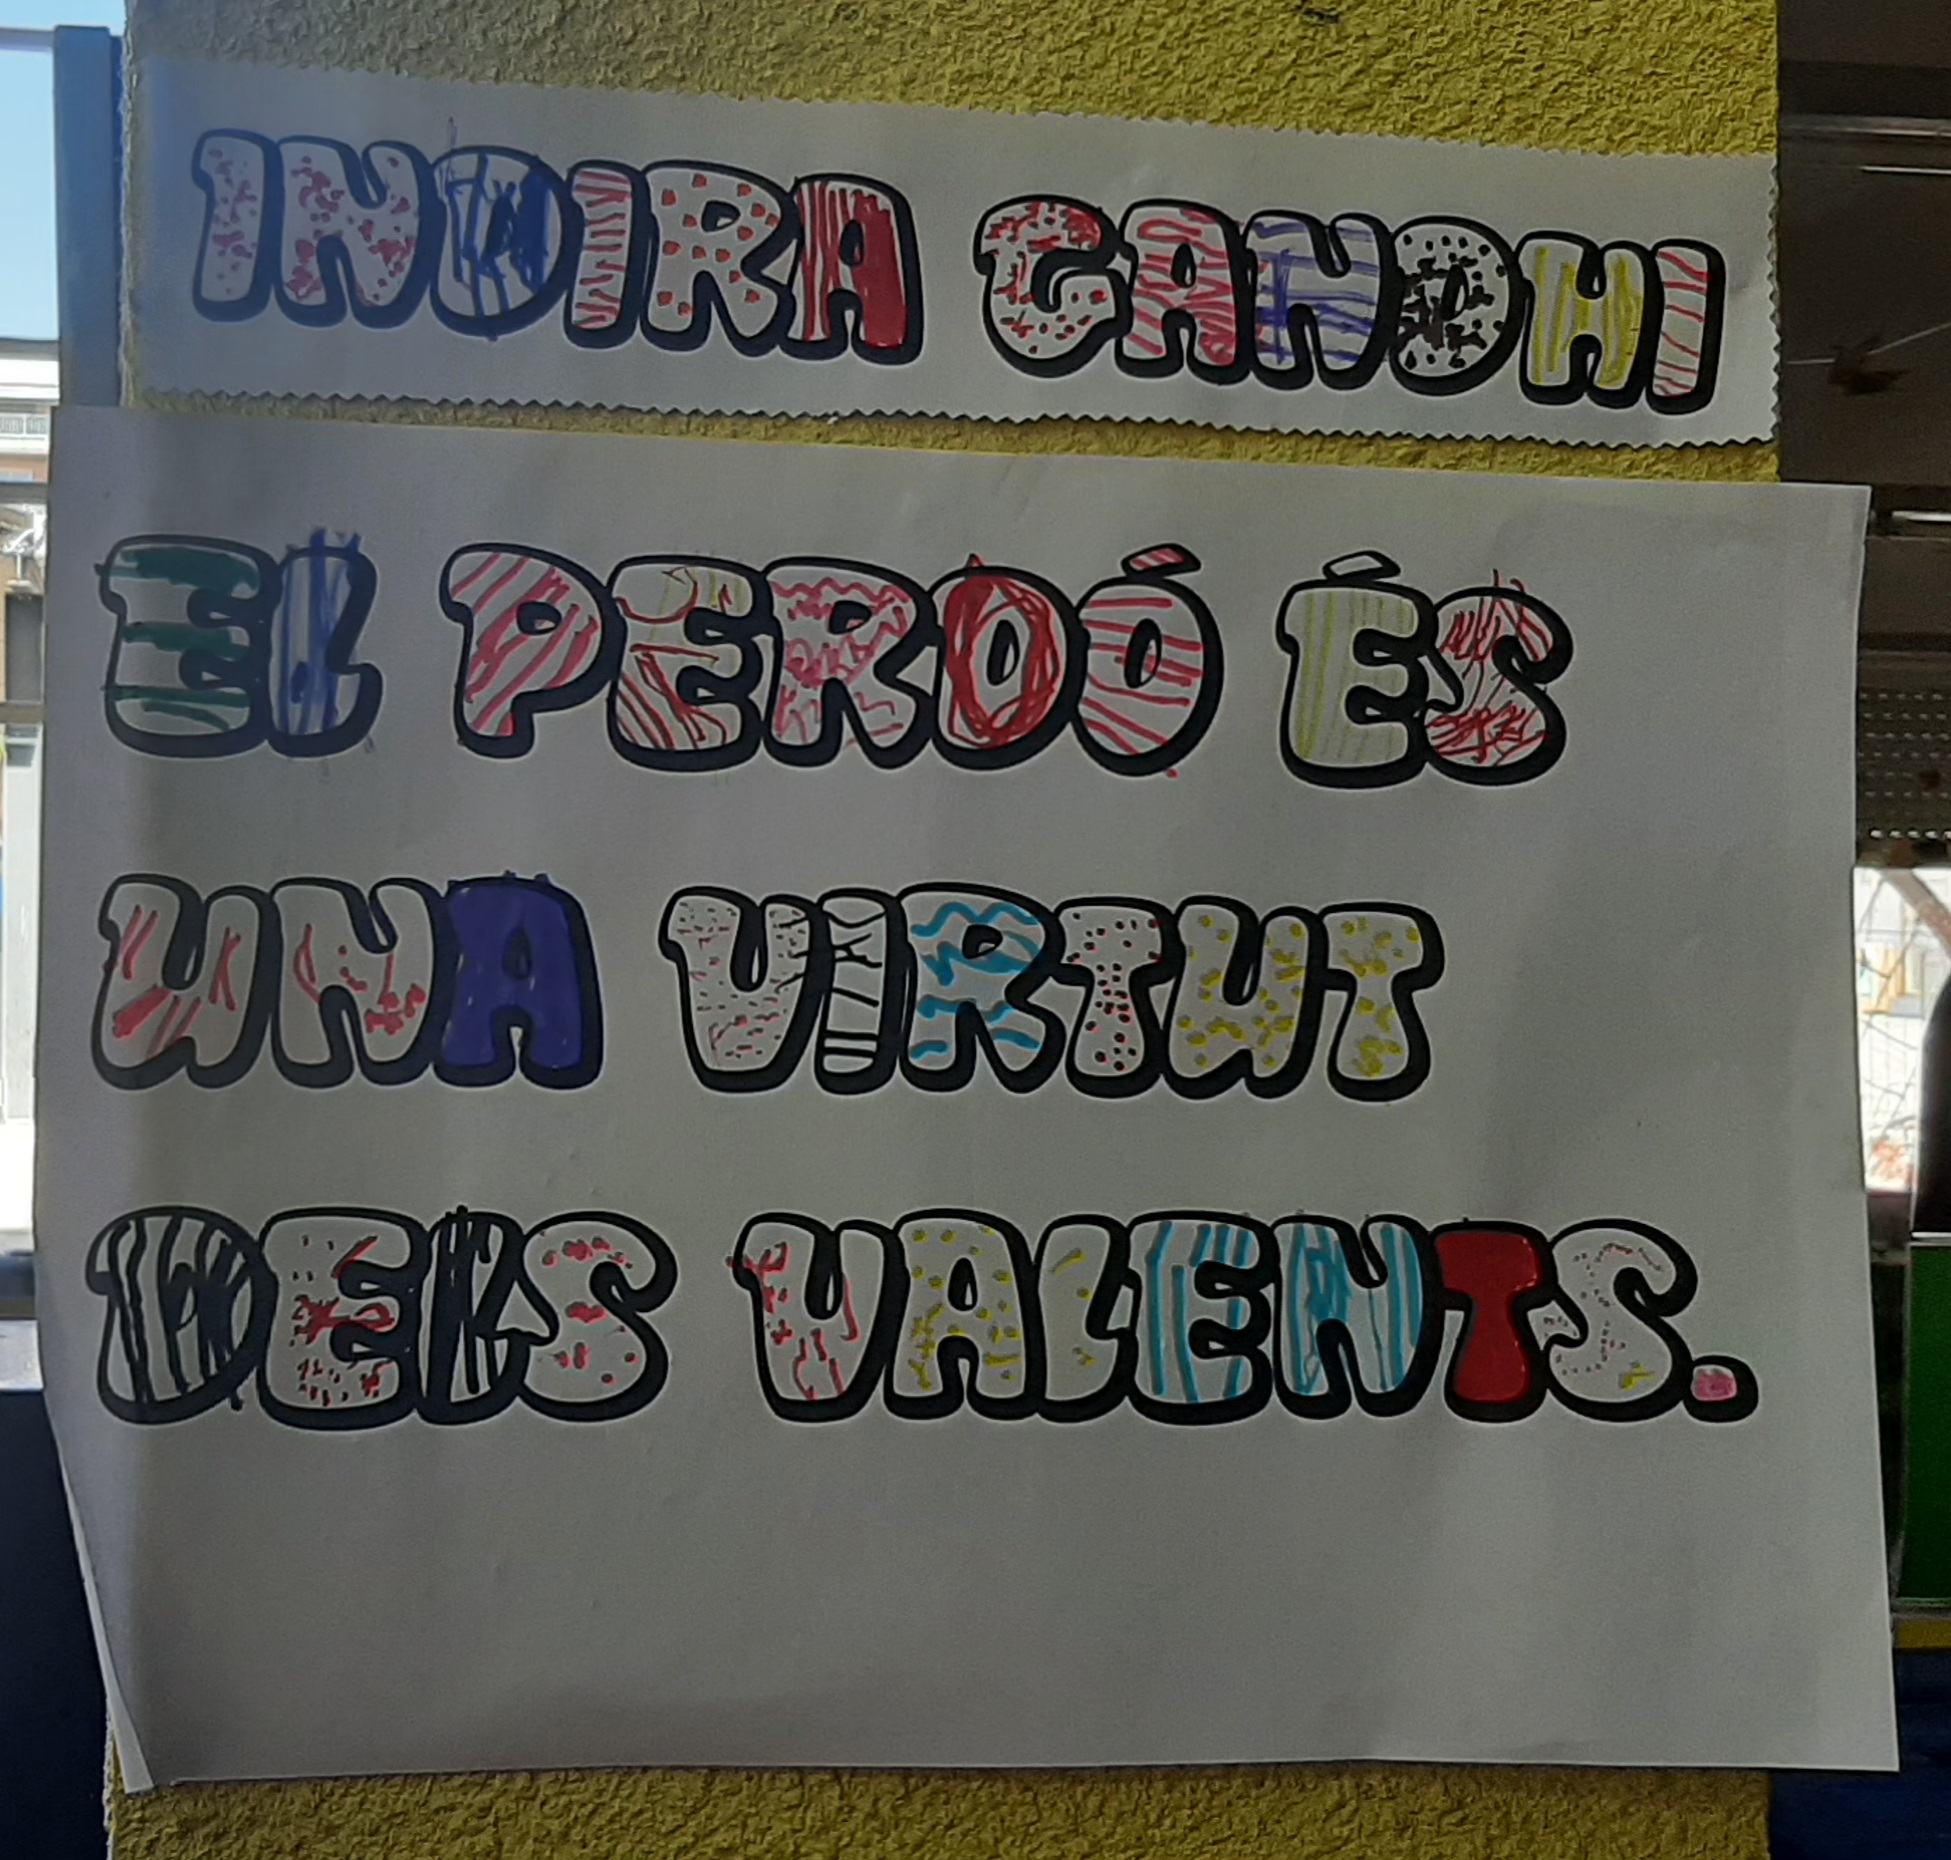 INDIRA GANDHI
EL PERDÓ ÉS
UNA VIRTUT
DELS VALENTS.